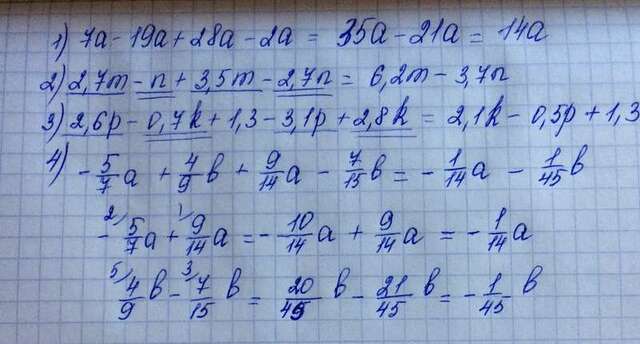 1) 7a - 19a + 28a - 2a = 35a - 21a = 14a
2) 2,7m - n + 3,5m - 2,7n = 6,2m - 3,7n
3) 2,6p - 0,7k + 1,3 - 3,1p + 2,8k = 2,1k - 0,5p + 1,3
4) - 5/7 a + 4/9 в + 9/14 a - 7/15 в = - 1/14 a - 1/45 в
- 2) 5/7 a + 1) 9/14 a = - 10/14 a + 9/14 a = - 1/14 a
5) 4/9 в - 3) 7/15 в = 20/45 в - 21/45 в = - 1/45 в